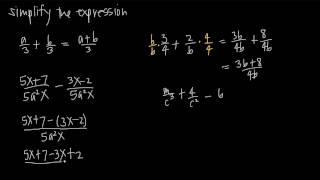 simplify the expression
a/3 + b/3 = (a+b)/3
(5x+7)/(5a²x) - (3x-2)/(5a²x)
(5x+7-(3x-2))/(5a²x)
5x+7-3x+2
b/b · 3/4 + 2/b · 4/4 = 3b/4b + 8/4b
= (3b+8)/4b
/c³ + 4/c² - 6